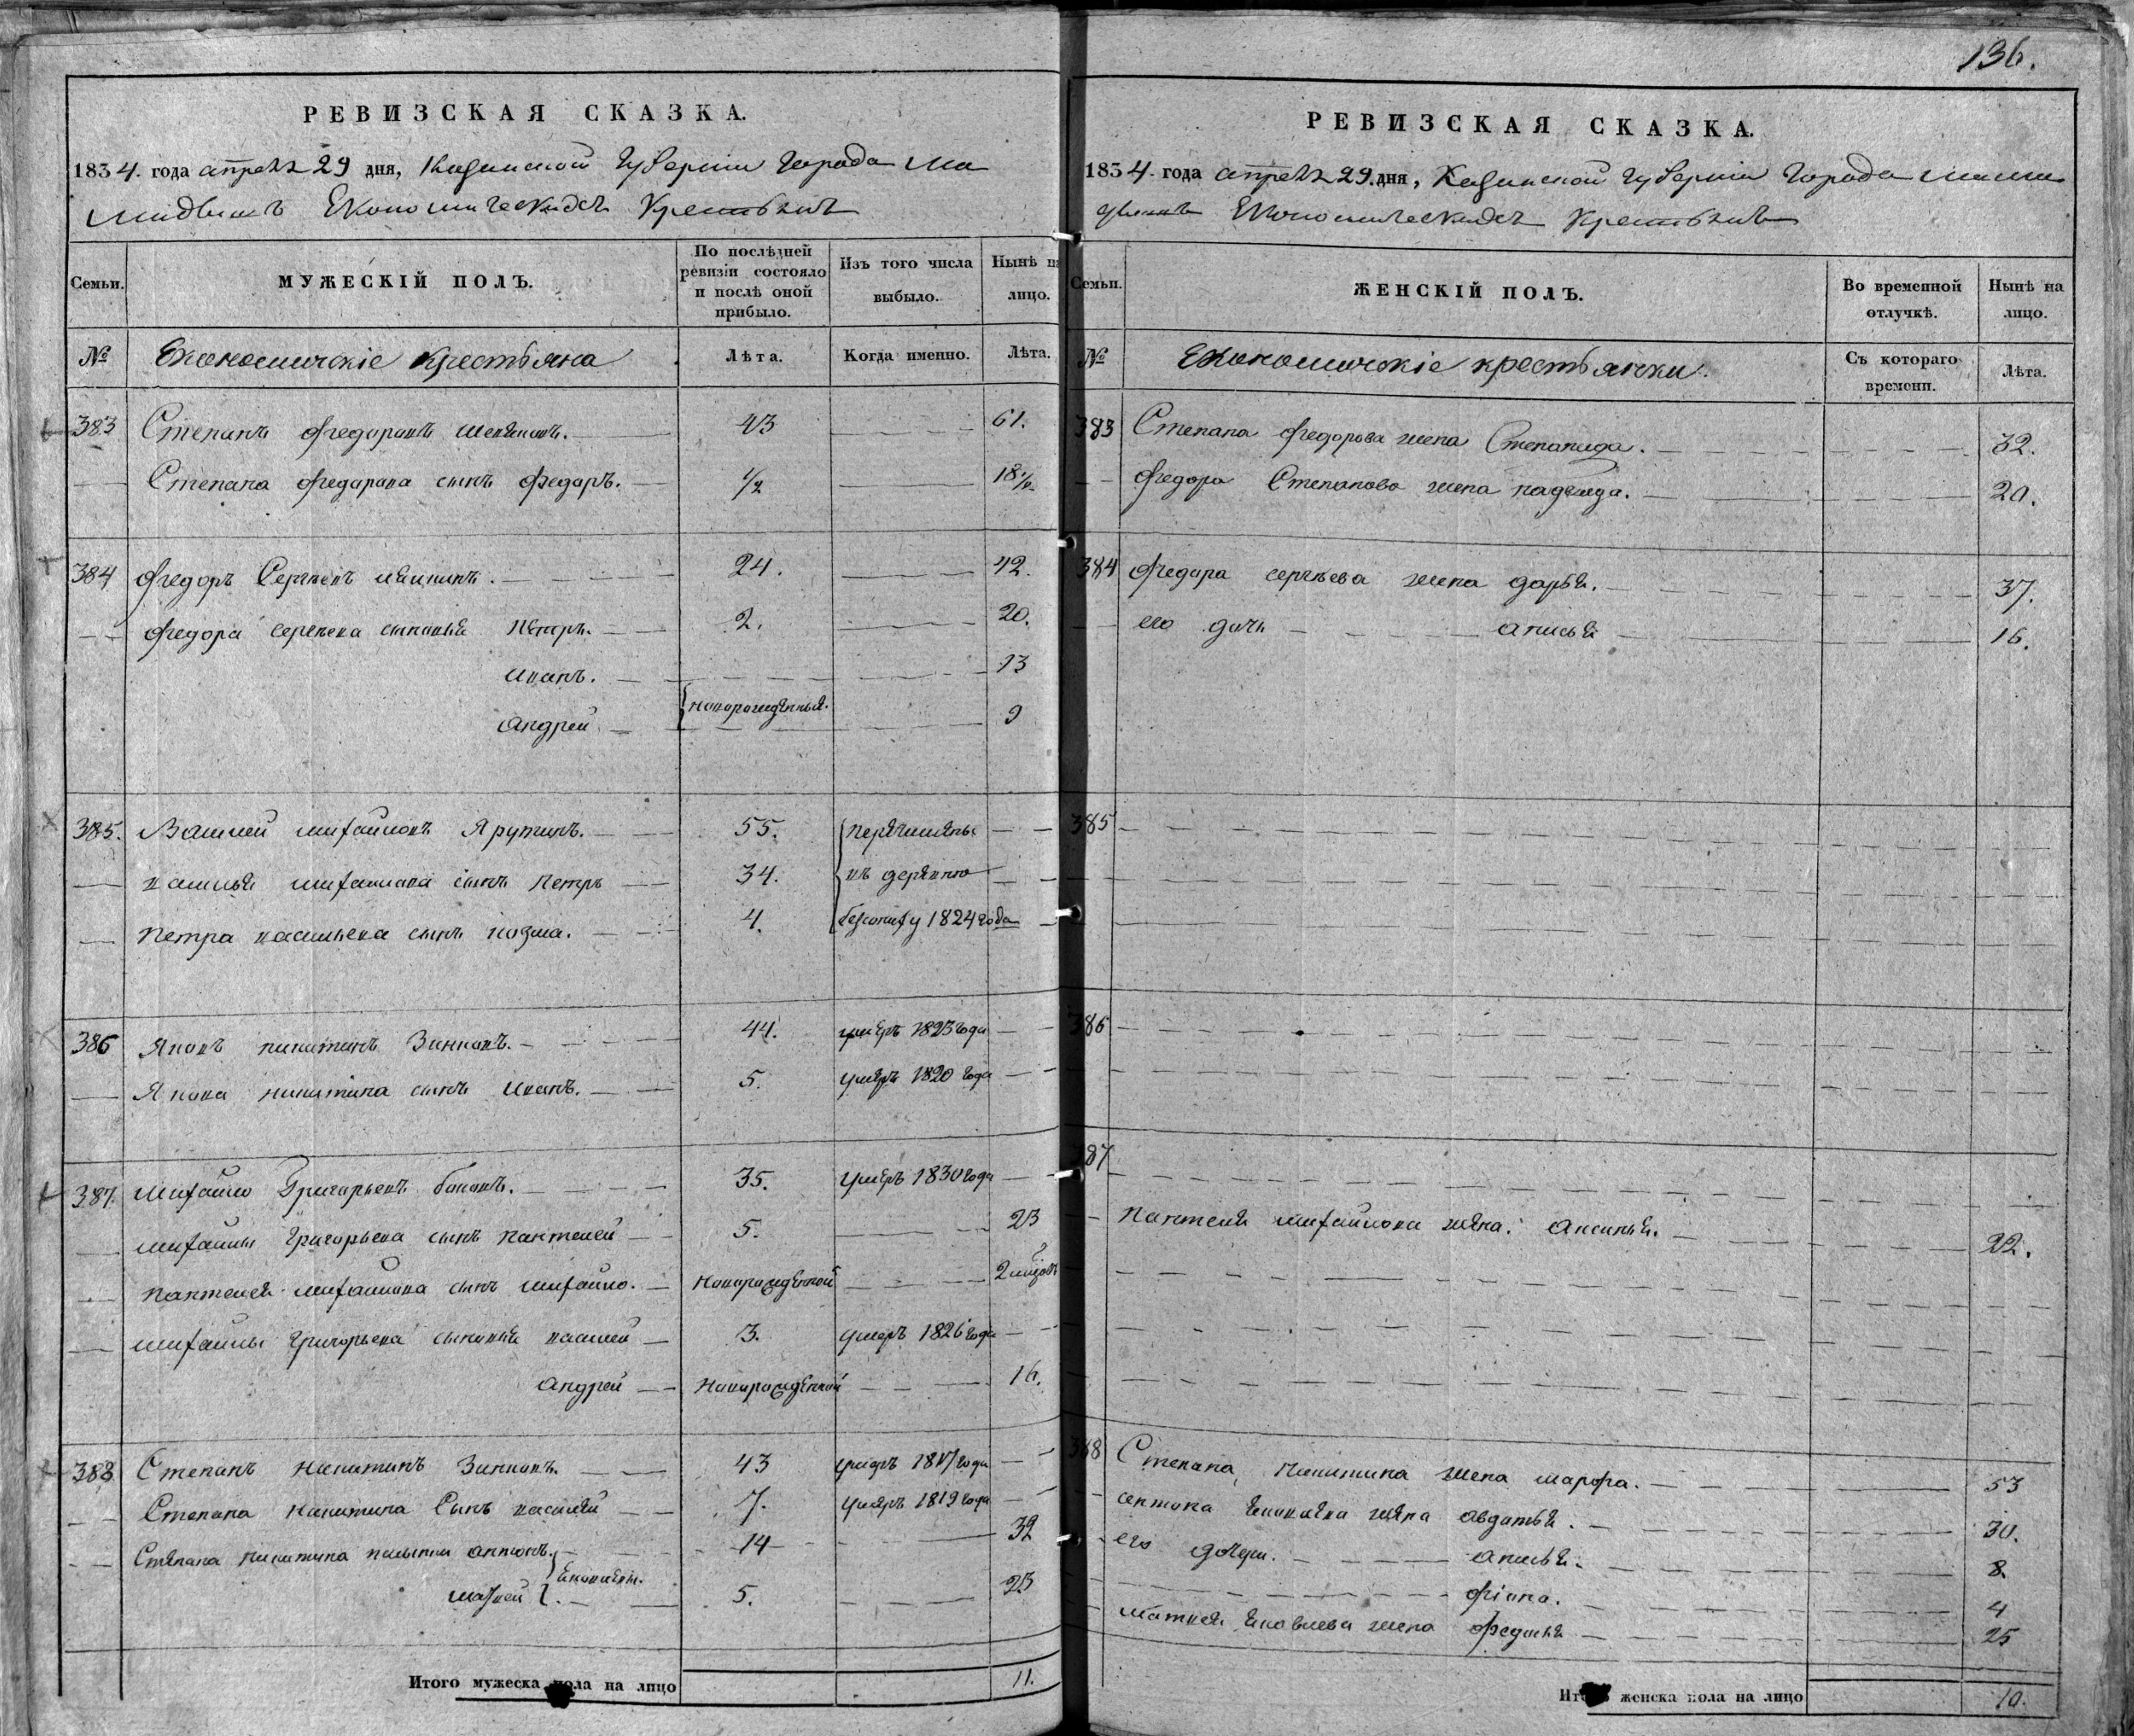 136.
РЕВИЗСКАЯ СКАЗКА.
1834. года апреля 29 дня, Казанской губернии города Ма
мадыша Економическихъ крестьянъ
Семьи.
МУЖЕСКІЙ ПОЛЪ.
По послѣдней ревизіи состояло и послѣ оной прибыло.
Изъ того числа выбыло.
Нынѣ на лицо.
№ Економическіе крестьяна Лѣта. Когда именно. Лѣта.
383 Степанъ Федаравъ 43 61.
Степана Федарава сынъ Федаръ. 1/2 18 1/2
384 Федоръ Сергѣевъ 24. 42.
Федора Сергѣева сыновья Петръ. 2. 20.
Иванъ. 13
Андрей новорожденныя 9
385. Василей Михайловъ Ярутинъ. 55. перечислены
Василья Михайлова сынъ Петръ 34. въ деревню
Петра Васильева сынъ Козма. 4. 1824 года
386 Яковъ Никитинъ Зиновъ. 44. умеръ 1823 года
Якова Никитина сынъ Иванъ. 5. умеръ 1820 года
387. Михайло Григорьевъ 35. умеръ 1830 года
Михайлы Григорьева сынъ Пантелей 5. 23
Пантелея Михайлова сынъ Михайло. новорожденной 2
Михайлы Григорьева сыновья Василей 3. умеръ 1826 года
Андрей новорожденной 16.
388 Степанъ Никитинъ Зиновъ. 43 умеръ 1817 года
Степана Никитина Сынъ Василей 7. умеръ 1819 года
Степана Никитина Антонъ. 14 32
Матвей Яковлевы. 5. 23
Итого мужеска пола на лицо 11.
РЕВИЗСКАЯ СКАЗКА.
1834. года апреля 29. дня, Казанской губернии города Мама
дыша Економическихъ крестьянъ
Семьи.
ЖЕНСКІЙ ПОЛЪ.
Во временной отлучкѣ.
Нынѣ на лицо.
№ Економическіе крестьянки. Съ котораго времени. Лѣта.
383 Степана Федорова жена Степанида. 32.
Федора Степанова жена Надежда. 20.
384 Федара Сергѣева жена Дарья. 37.
его дочь Анисья 16.
385
386
387
Пантелея Михайлова жена Аксинья. 22.
388 Степана Никитина жена Марфа. 53
Антона Яковлева жена Авдатья. 30.
его дочери. Анисья. 8.
4
Матвея Яковлева жена Федосья 25
Итого женска пола на лицо 10.